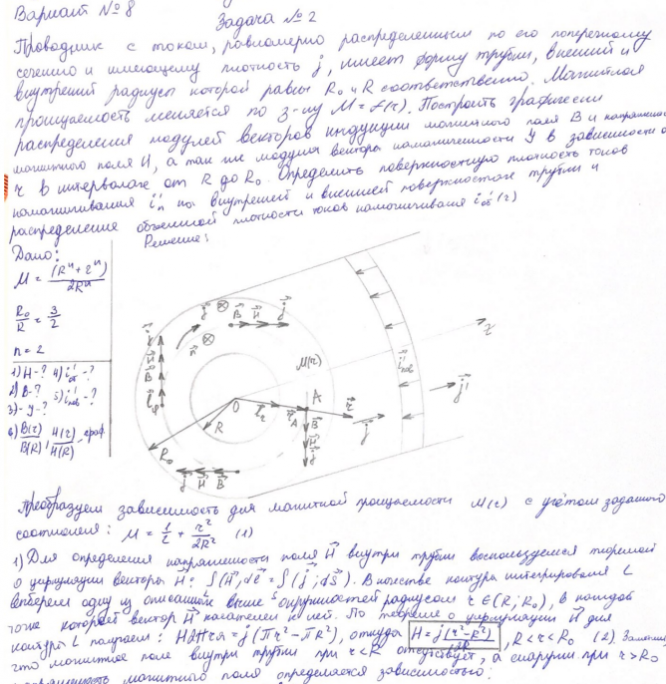 Вариант №8
Задача №2
Проводник с током, равномерно распределенным по его поперечному
сечению и имеющему плотность j, имеет форму трубы, внешний и
внутренний радиусы которой равны R₀ и R соответственно. Магнитная
проницаемость меняется по з-ну M = f(r). Построить графически
распределения модулей векторов индукции магнитного поля B и напряжен.
магнитного поля H, а так же модуля вектора намагниченности J в зависимости о
r в интервале от R до R₀. Определить поверхностную плотность токов
намагничивания i'п на внутренней и внешней поверхностях трубы и
распределение объемной плотности токов намагничивания i'об (r)
Решение:
Дано:
M = (Rⁿ + rⁿ) / 2Rⁿ
R₀/R = 3/2
n = 2
1) H-? 4) i'об -?
2) B-? 5) i'пов -?
3) -J-?
6) B(r)/B(R), H(r)/H(R) -граф.
M(r)
z
A
O
R
R₀
j
i'пов
Преобразуем зависимость для магнитной проницаемости M(r) с учётом заданного
соотношения: M = 1/2 + r²/2R² (1)
1) Для определения напряженности поля H⃗ внутри трубы воспользуемся теоремой
о циркуляции вектора H⃗: ∫(H⃗, dℓ⃗ = ∫(j⃗; dS⃗). В качестве контура интегрирования L
выберем одну из описанных выше окружностей радиусом r ∈ (R; R₀), в каждой
точке которой вектор H⃗ касателен к ней. По теореме о циркуляции H⃗ для
контура L получаем: H2πr = j(πr² - πR²), откуда H = j(r² - R²)/2R, R < r < R₀ (2). Заметим,
что магнитное поле внутри трубы при r < R отсутствует, а снаружи при r > R₀
напряженность магнитного поля определяется зависимостью: